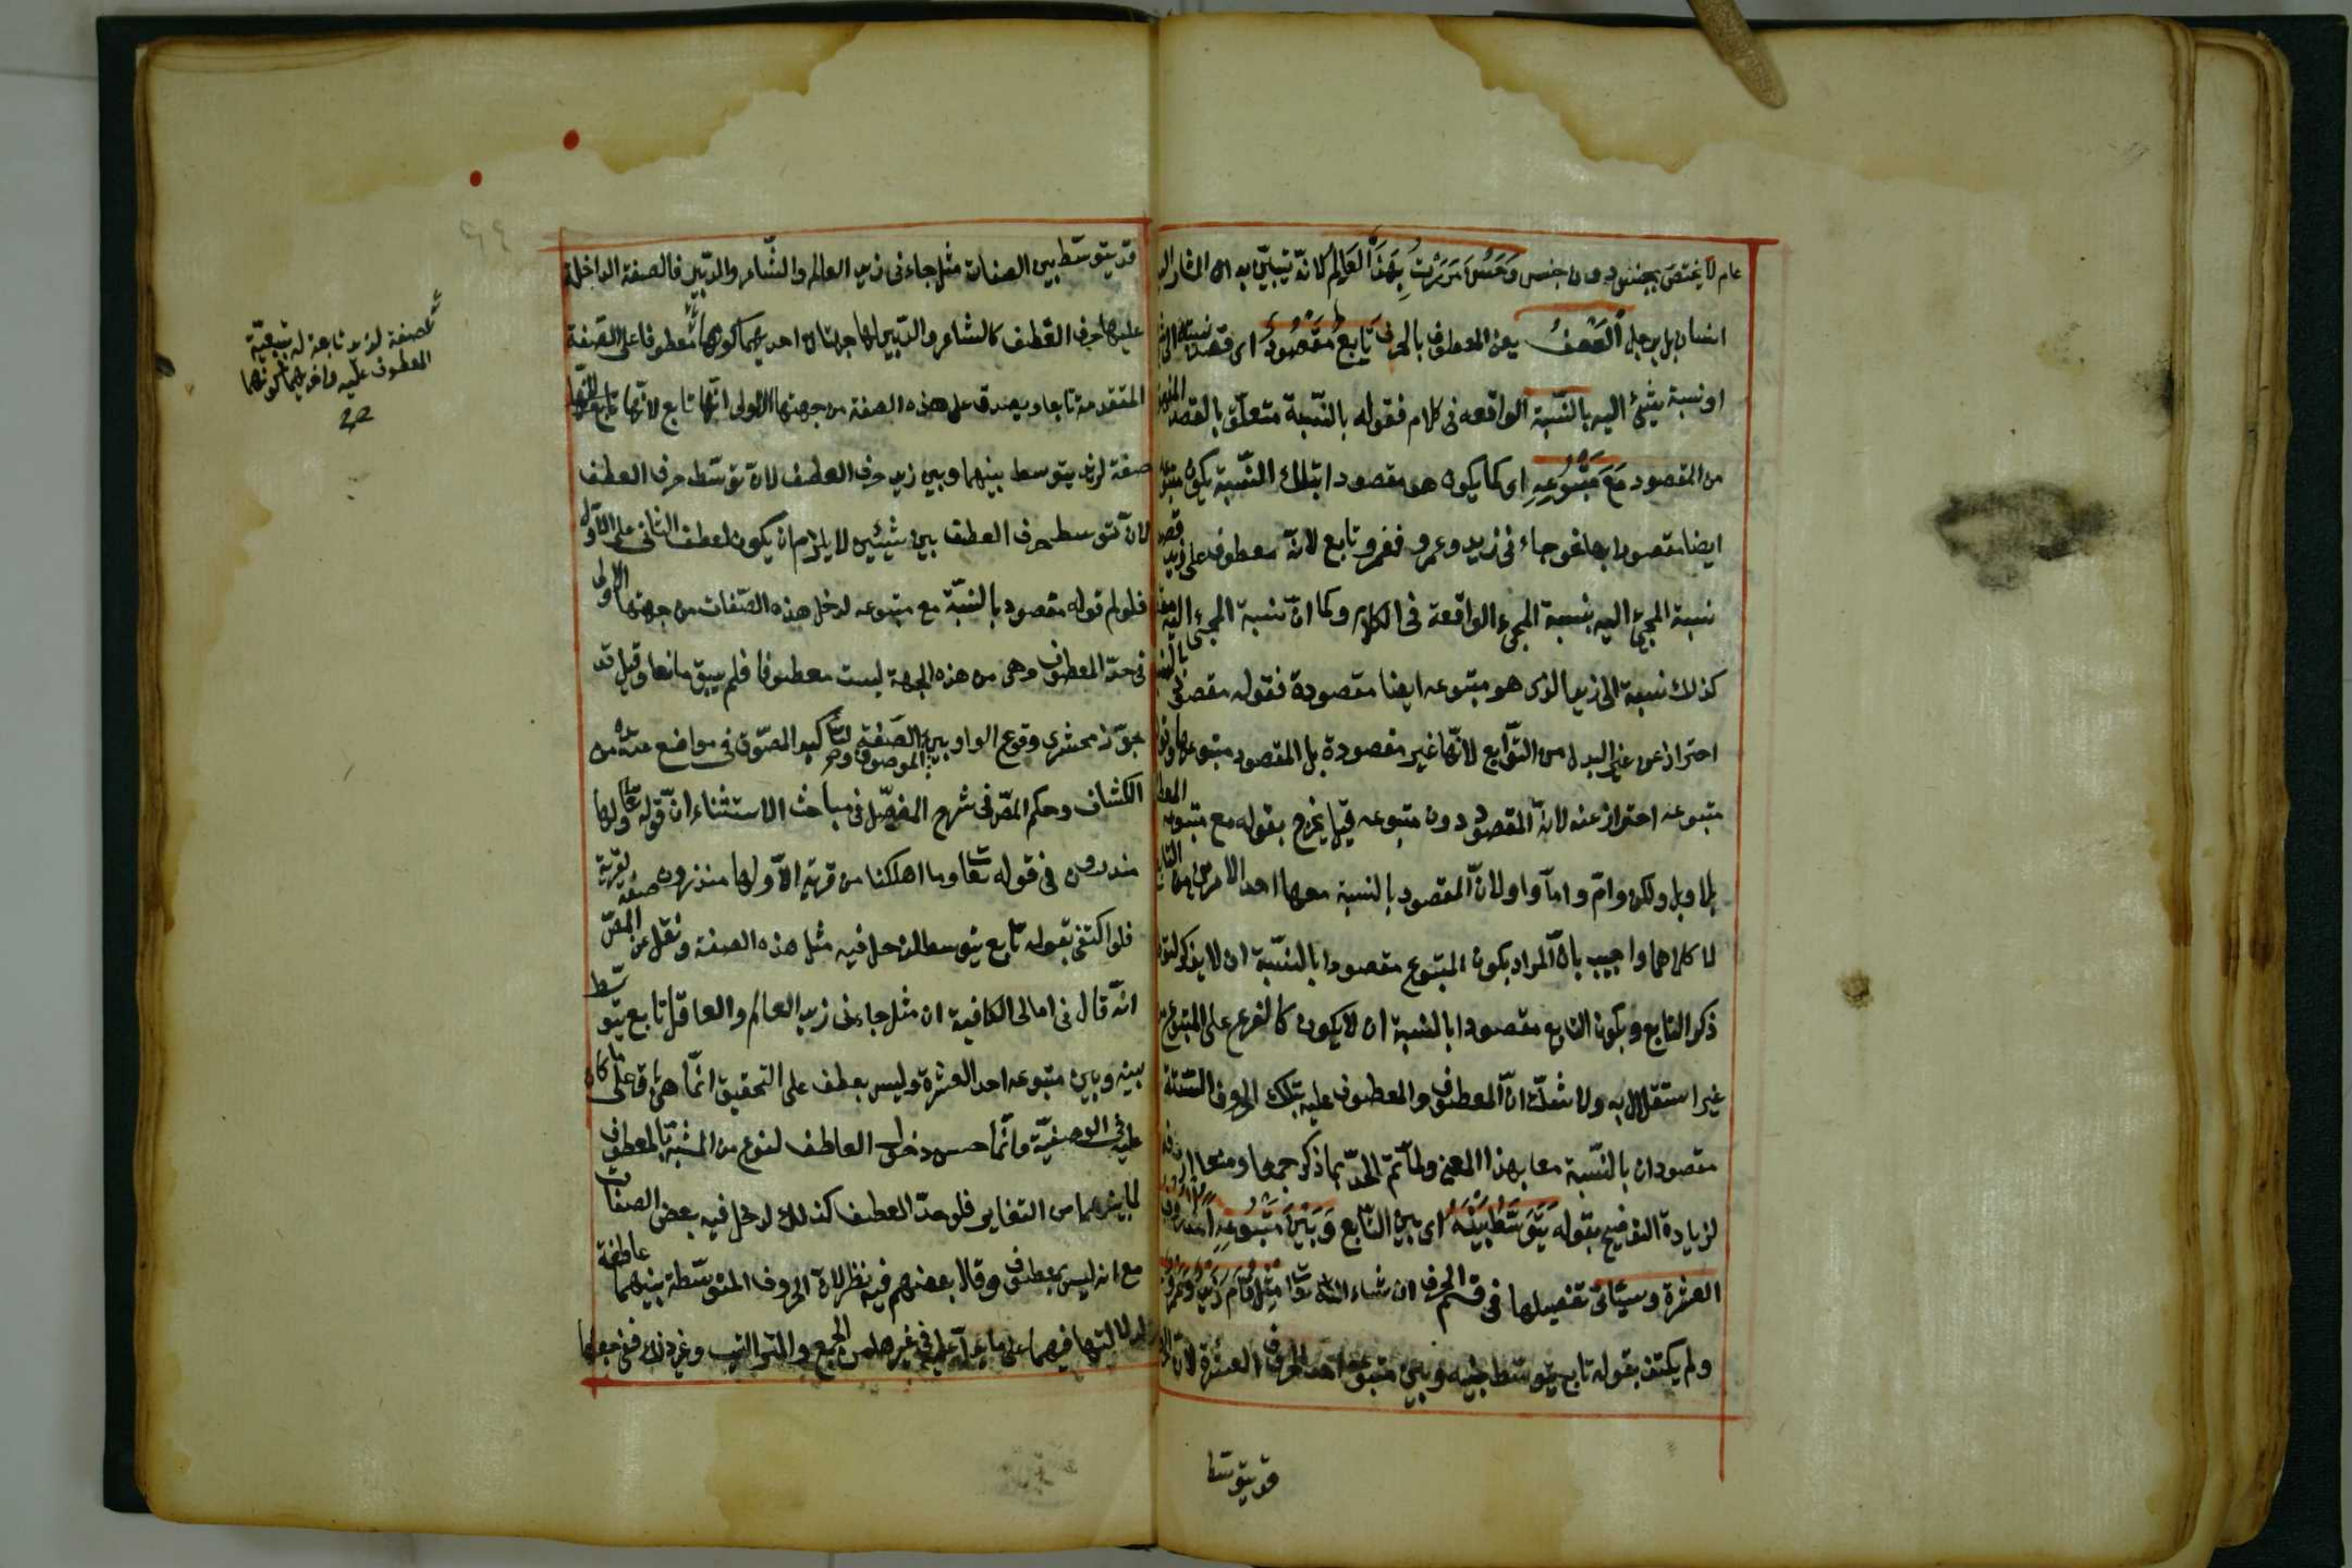 عام لا يختص بجنس دون جنس وَحَسُنَ مَرَرْتُ بِهَذَا العَالِمِ لانّه يتبيّن به ان المشار اليه
انسان بل رجل اَلعَطْفُ يعنى المعطوف بالحرف تَابِعٌ مَقْصُودٌ اى قصد نسبته الى شئ
او نسبة شئ اليه بالنّسبة الواقعه فى كلام فقوله بالنّسبة متعلّق بالقصد المفهوم
من المقصود مَعَ مَتْبُوعِهِ اى كما يكون هو مقصودا بتلك النّسبة يكون متبوعه
ايضا مقصودا بها نحو جاءنى زيد وعمرو فعمرو تابع لانّه معطوف على زيد قصد
نسبة المجئ اليه بنسبة المجئ الواقعة فى الكلام وكما انّ نسبة المجئ اليه مقصودة
كذلك نسبة الى زيد الذى هو متبوعه ايضا مقصودة فقوله مقصود بالنسبة
احتراز عن غير البدل من التّوابع لانّها غير مقصودة بل المقصود متبوعاتها وقوله مع
متبوعه احتراز عنه لانّه المقصود دون متبوعه قيل يخرج بقوله مع متبوعه المعطوف
بلا وبل ولكن وام واما واو لانّ المقصود بالنسبة معها احد الامرين من التابع
لا كلاهما واجيب بانّ المراد بكون المتبوع مقصودا بالنّسبة ان لا يذكر لتوطئة
ذكر التابع وبكون التابع مقصودا بالنسبة ان لا يكون كالفرع على المتبوع من
غير استقلال به ولا شكّ انّ المعطوف والمعطوف عليه بتلك الحروف الستّة
مقصودان بالنّسبة معا بهذا المعنى ولمّا تمّ الحدّ بما ذكر جمعا ومنعا اردفه
لزيادة التوضيح بقوله يَتَوَسَّطُ بَيْنَهُ اى بين التّابع وَبَيْنَ مَتْبُوعِهِ اَحَدُ الحُرُوفِ
العشرة وسيئاتى تفصيلها فى قسم الحرف ان شاء الله تعا مِثْلُ قَامَ زَيْدٌ وَعَمْرٌو
ولم يكتف بقوله تابع يتوسّط بينه وبين متبوعه احد الحروف العشرة لانّ الحروف
قد يتوسّط
قد يتوسّط بين الصفات مثل جاءنى زيد العالم والشّاعر والدّبير فالصفة الداخلة
عليها حرف العطف كالشاعر والدّبير لها جهتان احديهما كونها معطوفا على الصّفة
المتقدمة تابعا ويصدق على هذه الصفة من جهتها الاولى انّها تابع لانّها
صفة لزيد يتوسط بينهما وبين زيد حرف العطف لانّ توسّط حرف العطف
لانّ توسط حرف العطف بين شيئين لا يلزم ان يكون لعطف الثانى على الاوّل
فلو لم قوله مقصود بالنسبّة مع متبوعه لدخل هذه الصّفات من جهتها الاولى
فى حدّ المعطوف وهى من هذه الجهة ليست معطوفا فلم يبق مانعا وقيل قد
جوّز زمحشرى وقوع الواو بين الموصوف والصّفة لتأكيد اللصوق فى مواضع عدّة من
الكشاف وحكم المصّ فى شرح المفصّل فى مباحث الاستثناء انّ قوله تعا ولها
منذرون فى قوله تعا وما اهلكنا من قرية الاّ ولها منذرون صفة لقرية
فلو اكتفى بقوله تابع يتوسط لدخل فيه مثل هذه الصفة ونقل عن المصّ
انّه قال فى امالى الكافية ان مثل جاءنى زيد العالم والعاقل تابع يتوسّط
بينه وبين متبوعه احد العشرة وليس بعطف على التحقيق انّما هى باق على ما كان
عليه فى الوصفيّة وانّما حسن دخول العاطف لنوع من الشبه بالمعطوف
لما بينهما من التغاير فلو حدّ العطف كذلك لدخل فيه بعض الصفات
مع انه ليس بمعطوف وقال بعضهم فيه نظر لانّ الحروف المتوسّطة بينهما عاطفة
لدلالتها فيهما على ما يدلّ عليه فى غيرها من الجمع والترتيب وغير ذلك ففى جعلها
صفة لزيد تابعة له بتبعيّة
المعطوف عليه واخريهما كونها